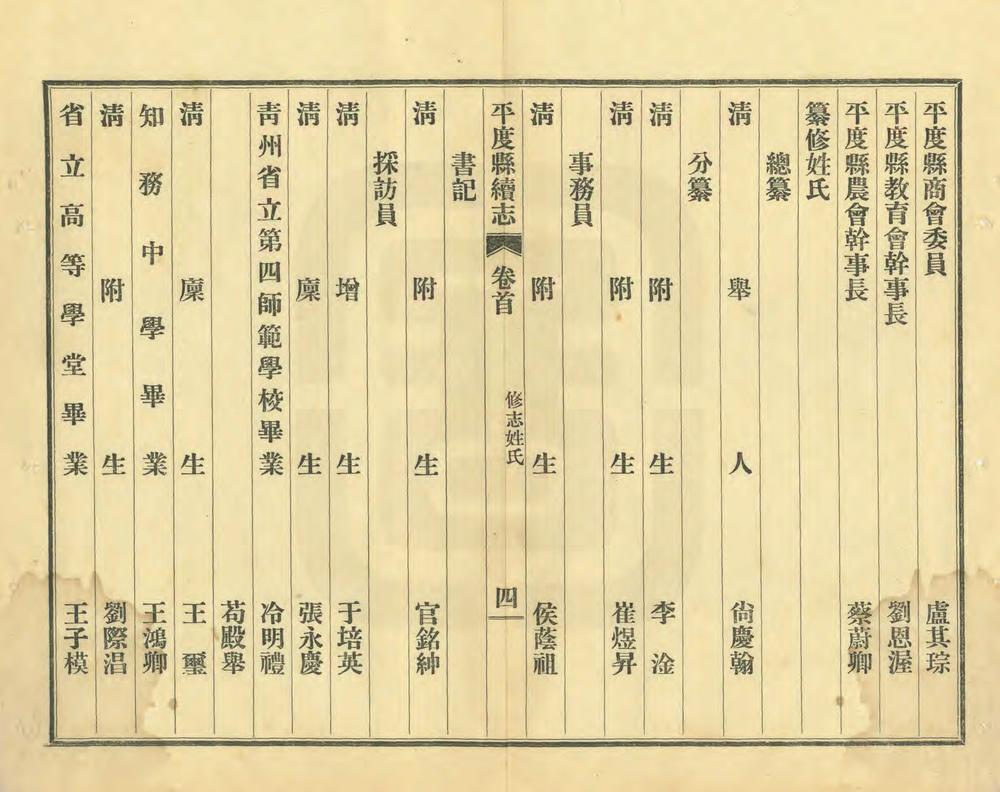 平度縣商會委員 盧其琮
平度縣教育會幹事長 劉恩渥
平度縣農會幹事長 蔡蔚卿
纂修姓氏
總纂
清舉人 尙慶翰
分纂
清附生 李淦
清附生 崔煜昇
事務員
清附生 侯蔭祖
平度縣續志 卷首 修志姓氏 四
書記
清附生 官銘紳
採訪員
清增生 于培英
清廩生 張永慶
靑州省立第四師範學校畢業 冷明禮
荀殿舉
清廩生 王璽
知務中學畢業 王鴻卿
清附生 劉際淐
省立高等學堂畢業 王子模